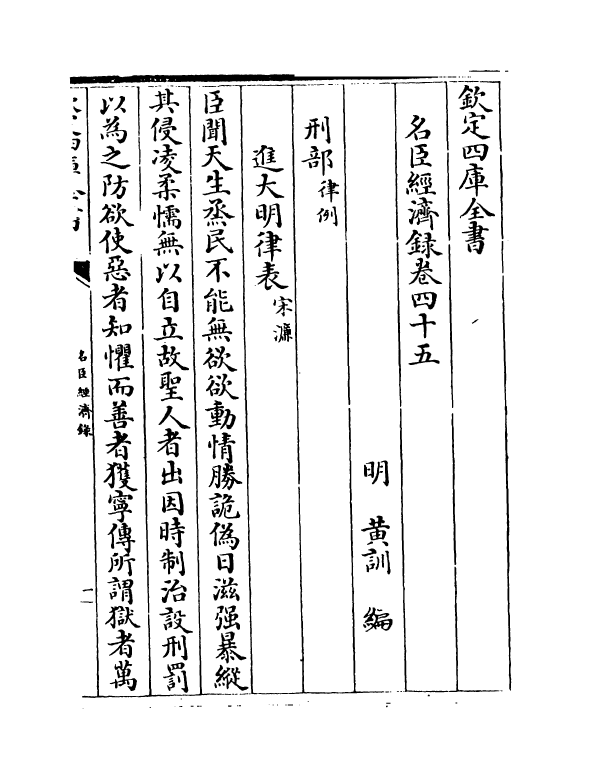 欽定四庫全書
名臣經濟錄卷四十五
明 黃訓 編
刑部律例
進大明律表宋濂
臣聞天生烝民不能無欲欲動情勝詭偽日滋强暴縱
其侵凌柔懦無以自立故聖人者出因時制治設刑罰
以為之防欲使惡者知懼而善者獲寧傳所謂獄者萬
名臣經濟錄
一